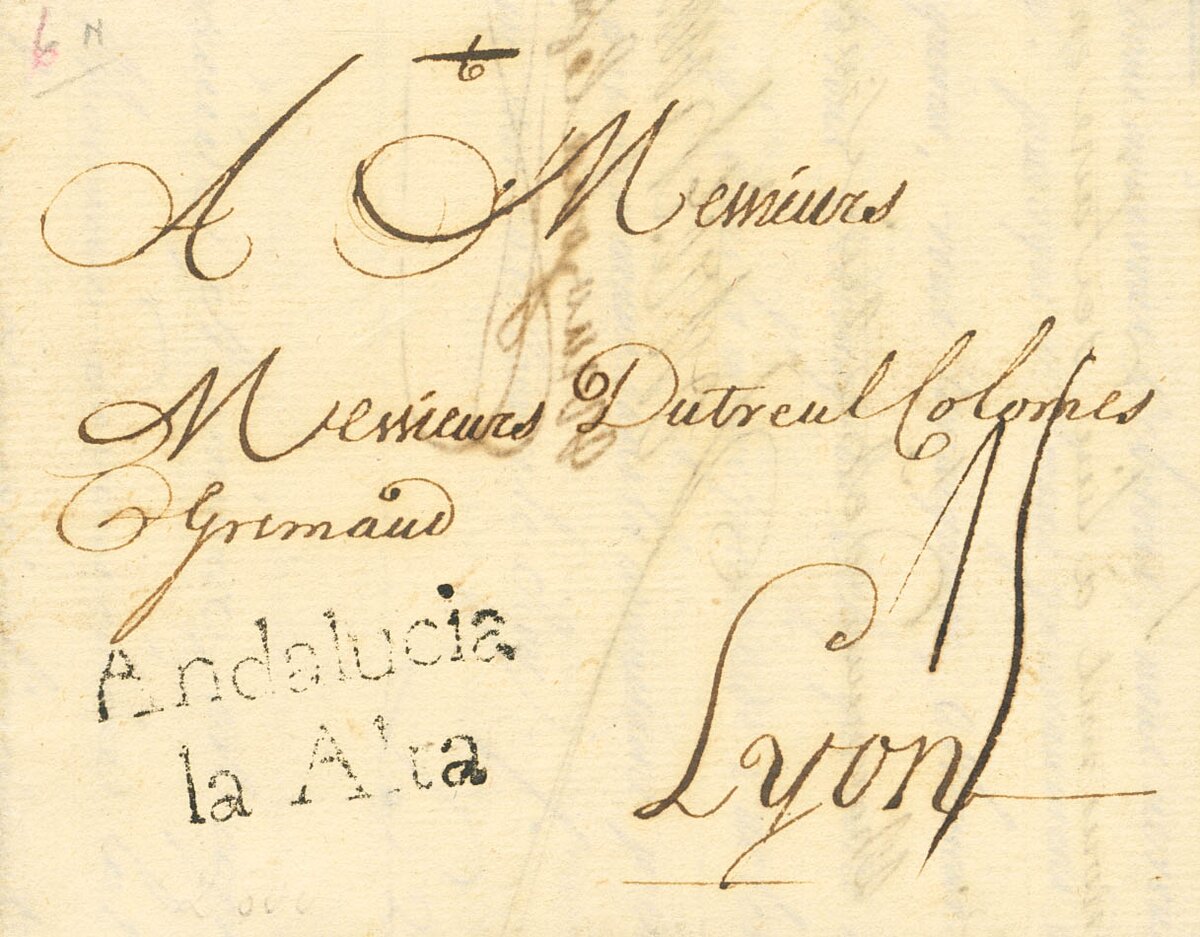 6 N
A Messieurs
Messieurs Dutreul Colomes
Grimaud
Andalucia
la Alta
Lyon